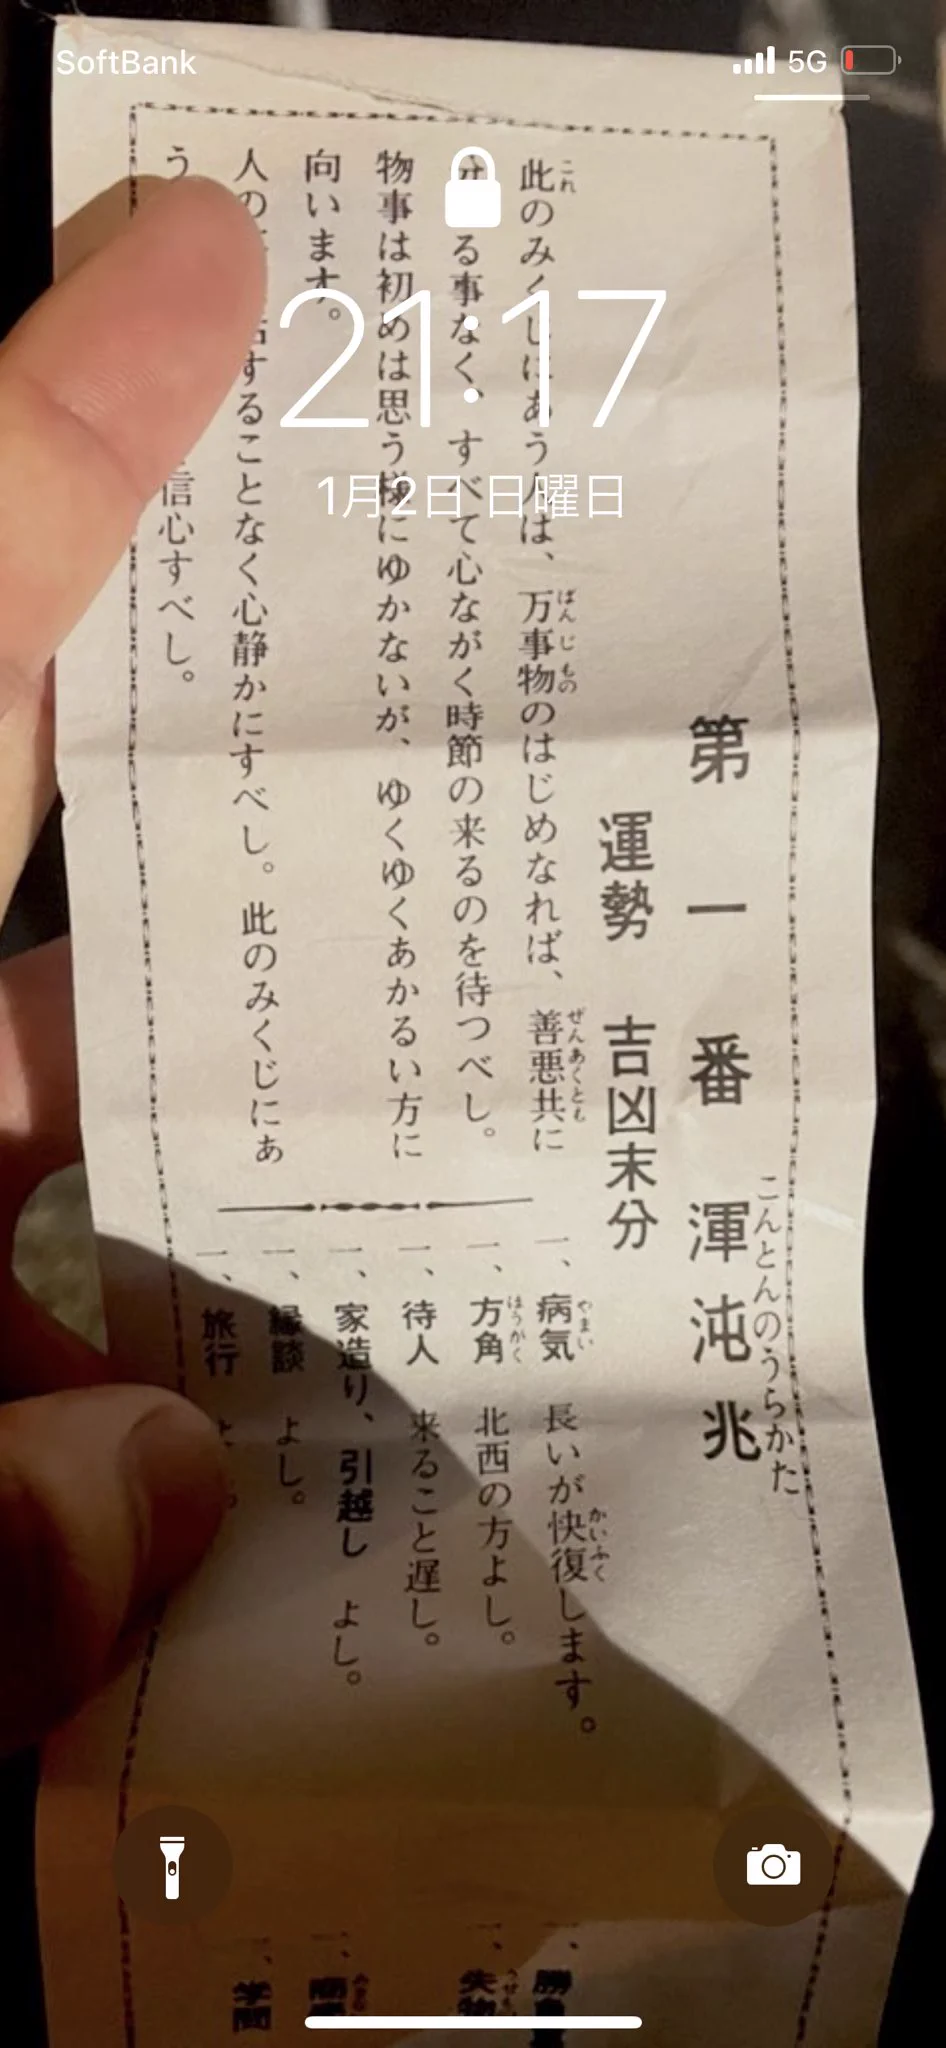 SoftBank
5G
21:17
1月2日 日曜日
第一番 渾沌兆
こんとんのうらかた
運勢 吉凶末分
此のみくじにあう人は、万事物のはじめなれば、善悪共に
これ
ばんじもの
ぜんあくとも
る事なく、すべて心ながく時節の来るのを待つべし。
物事は初めは思う様にゆかないが、ゆくゆくあかるい方に
向います。
人の
することなく心静かにすべし。此のみくじにあ
う
信心すべし。
一、病気 長いが快復します。
やまい
かいふく
一、方角 北西の方よし。
ほうがく
一、待人 来ること遅し。
一、家造り、引越し よし。
一、縁談 よし。
一、旅行 よ。
一、勝
一、失物
一、
一、学問